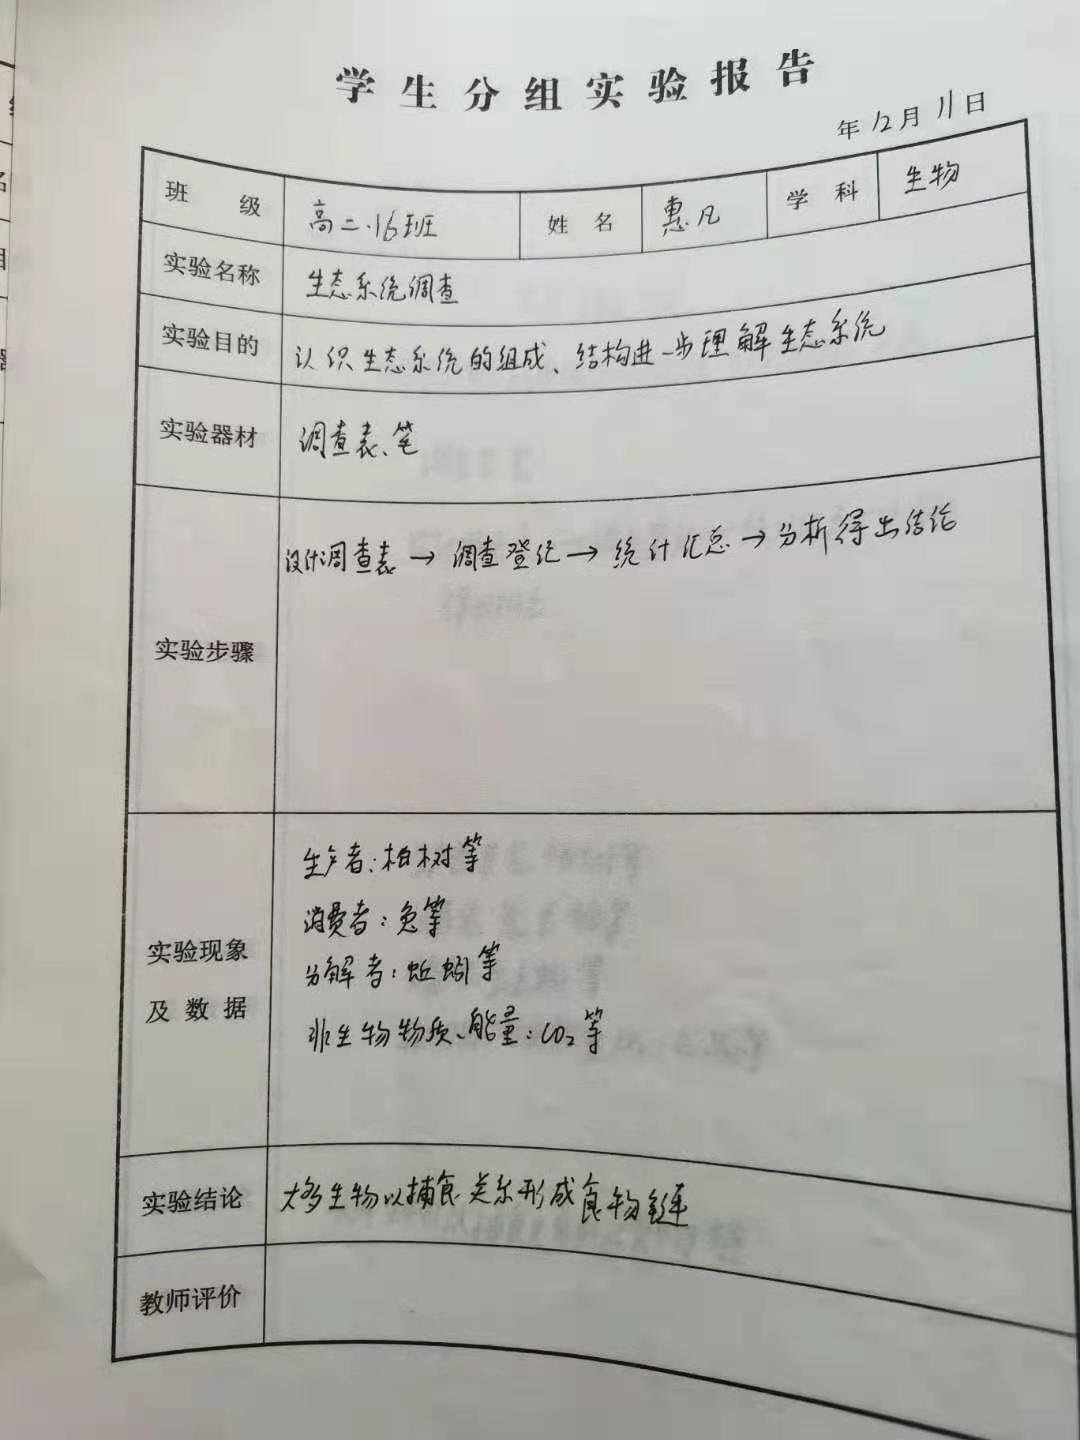 学生分组实验报告
年12月11日
班 级 高二·16班 姓 名 惠凡 学 科 生物
实验名称 生态系统调查
实验目的 认识生态系统的组成、结构进一步理解生态系统
实验器材 调查表、笔
实验步骤 设计调查表→调查登记→统计汇总→分析得出结论
实验现象
及 数 据
生产者:柏树等
消费者:兔等
分解者:蚯蚓等
非生物物质、能量:CO₂等
实验结论 大多生物以捕食关系形成食物链
教师评价